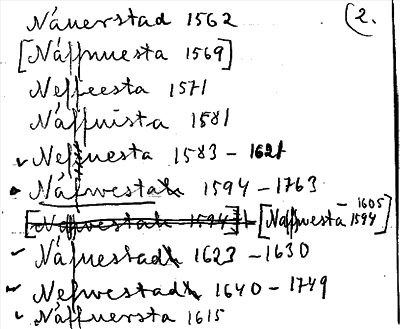 Näuerstad 1562 (2.
[Näffnuesta 1569]
Neffeesta 1571
Näffuista 1581
Neffuesta 1583 - 1621
Näfwestah 1594 - 1763
[Nafwestah 1594] [Naffwesta 1594 - 1605]
Näfuestadh 1623 - 1630
Nefwestadh 1640 - 1749
Näffuersta 1615